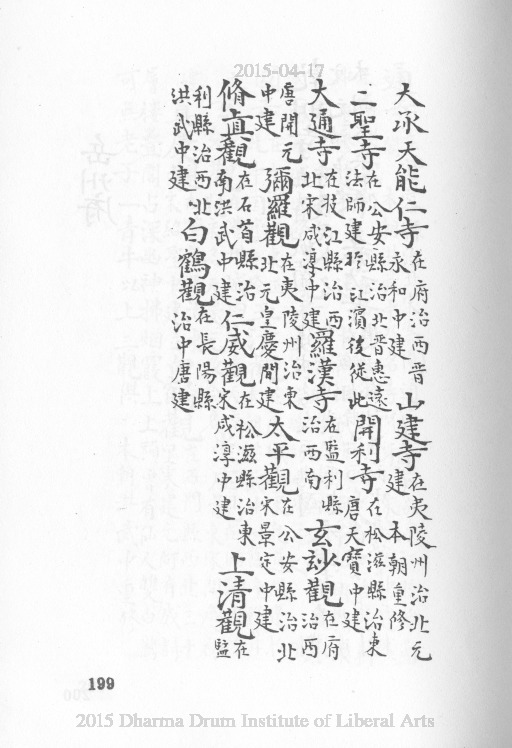 2015-04-17
大承天能仁寺在府治西晋永和中建山建寺在夷陵州治北元建本朝重修
二聖寺在公安縣治北晋惠遠法師建於江濱後從此開利寺在松滋縣治東唐天寶中建
大通寺在枝江縣治西北宋咸淳中建羅漢寺在監利縣治西南玄玅觀在府治西
唐開元中建彌羅觀在夷陵州治東北元皇慶間建太平觀在公安縣治北宋景定中建
脩真觀在石首縣治南洪武中建仁威觀在松滋縣治東宋咸淳中建上清觀在監
利縣治西北洪武中建白鶴觀在長陽縣治中唐建
199
2015 Dharma Drum Institute of Liberal Arts